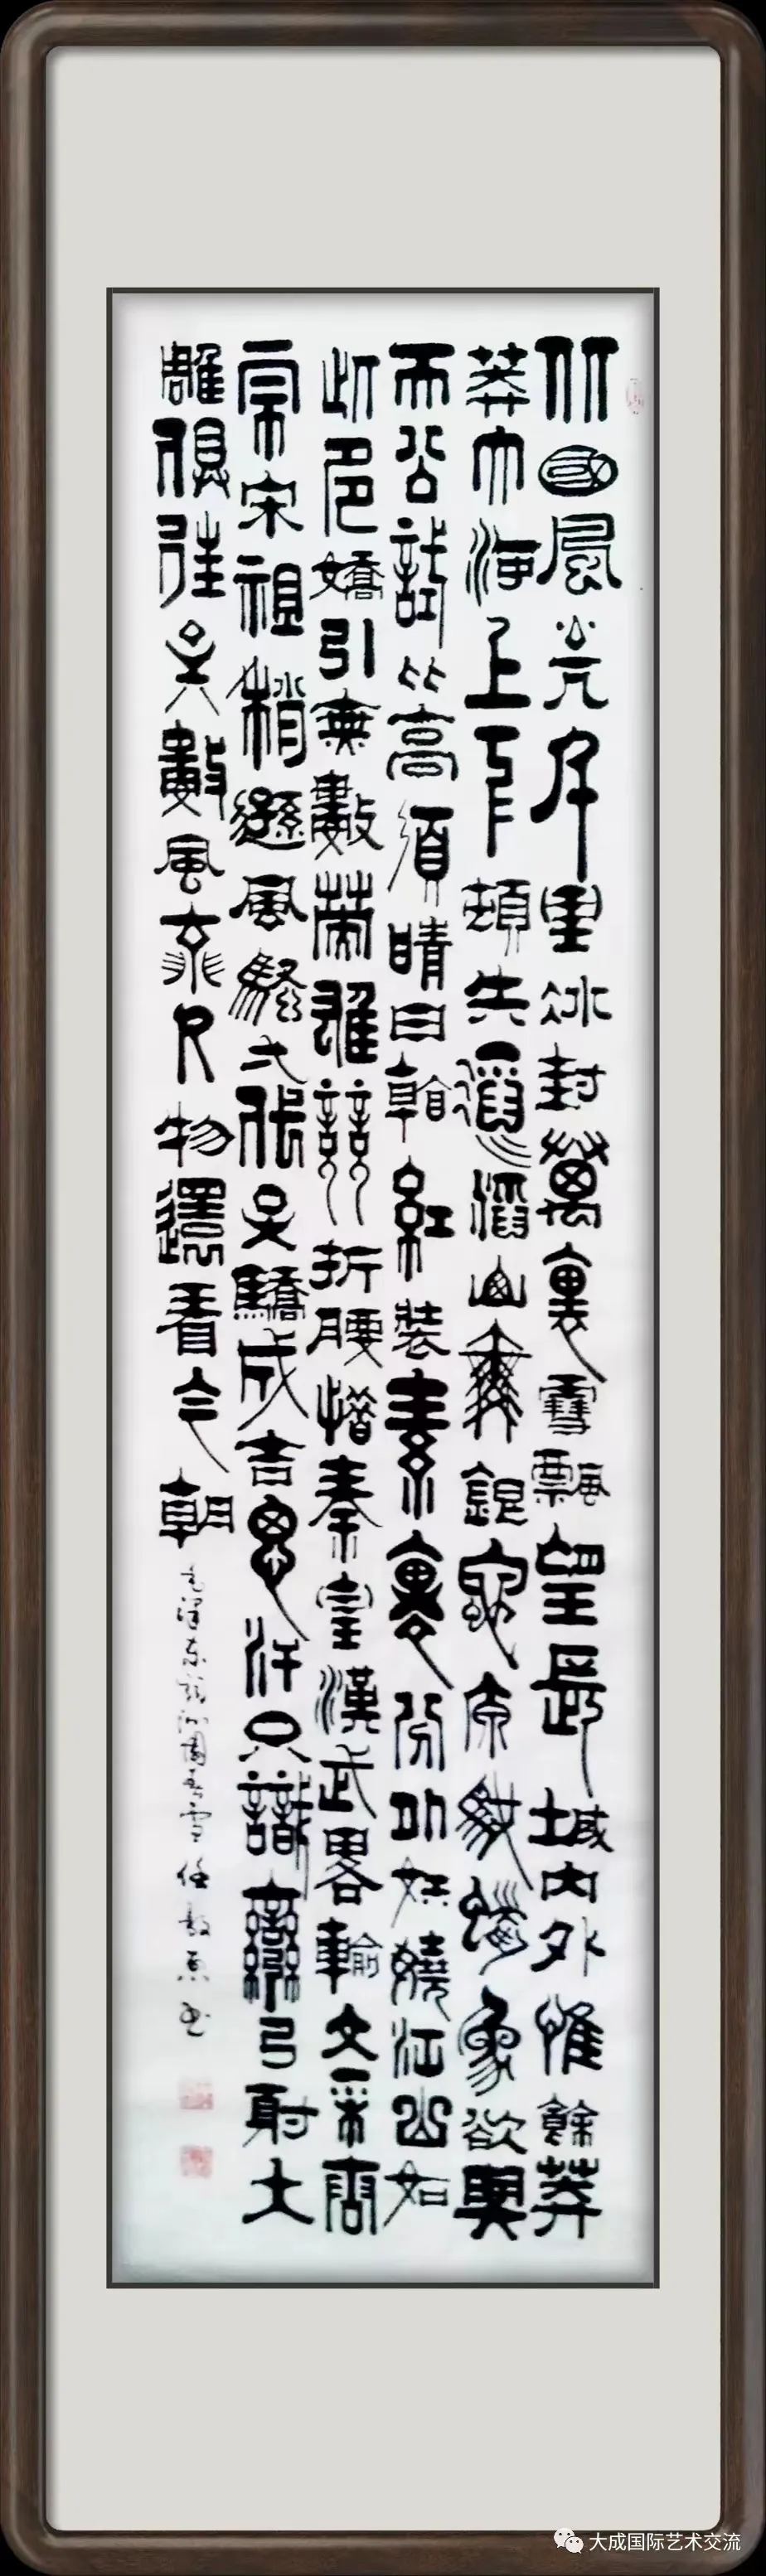 北國風光千里冰封萬裏雪飄望長城內外惟餘莽
莽大河上下頓失滔滔山舞銀蛇原馳蠟象欲與
天公試比高須晴日看紅裝素裹分外妖嬈江山如
此多嬌引無數英雄競折腰惜秦皇漢武略輸文采唐
宗宋祖稍遜風騷弌代天驕成吉思汗只識彎弓射大
雕俱往矣數風流人物還看今朝
毛澤東詞沁園春雪 任 書
大成国际艺术交流